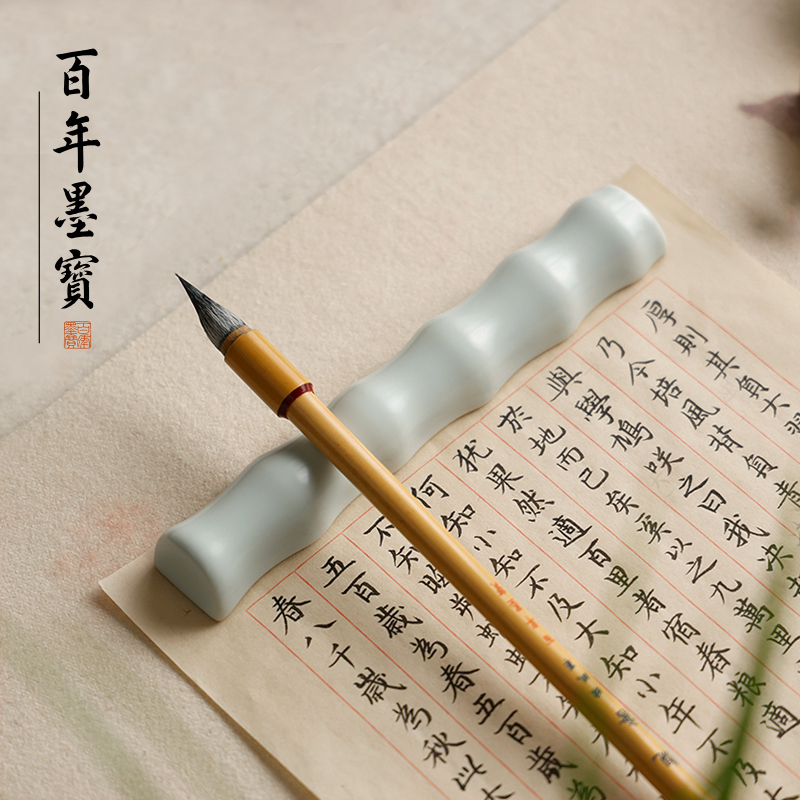 百年墨寶
百年墨寶
厚則其負大
乃今培風背負青
與學鳩咲之曰我決
於地而已矣奚以之九萬里
犹果然適百里者宿春粮適
何知小知不及大知小年不及大
不知晦朔
五百歲為春五百歲為
春八千歲為秋此大